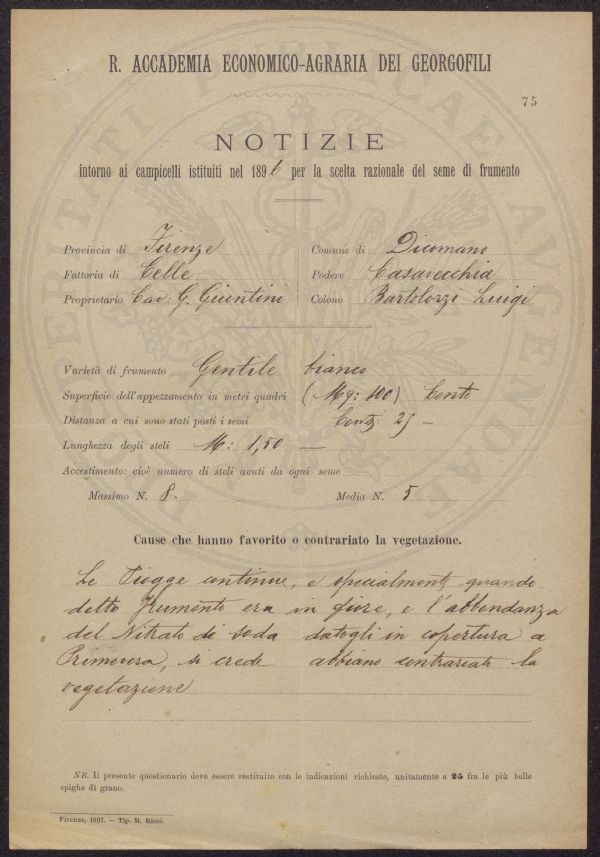 R. ACCADEMIA ECONOMICO-AGRARIA DEI GEORGOFILI
75
NOTIZIE
intorno ai campicelli istituiti nel 1896 per la scelta razionale del seme di frumento
Provincia di Firenze
Comune di Dicomano
Fattoria di Celle
Podere Casavecchia
Proprietario Cav: G. Giuntini
Colono Bartolozzi Luigi
Varietà di frumento Gentile bianco
Superficie dell'appezzamento in metri quadri (Mq: 100) Cento
Distanza a cui sono stati posti i semi Cent: 25 —
Lunghezza degli steli M: 1,50 —
Accestimento: cioè numero di steli avuti da ogni seme
Massimo N. 8. Media N. 5
Cause che hanno favorito o contrariato la vegetazione.
Le Piogge continue, e specialmente quando
detto frumento era in fiore, e l'abbondanza
del Nitrato di soda datogli in copertura a
Primavera, si crede abbiano contrariato la
vegetazione
NB. Il presente questionario deve essere restituito con le indicazioni richieste, unitamente a 25 fra le più belle
spighe di grano.
Firenze, 1897. — Tip. M. Ricci.